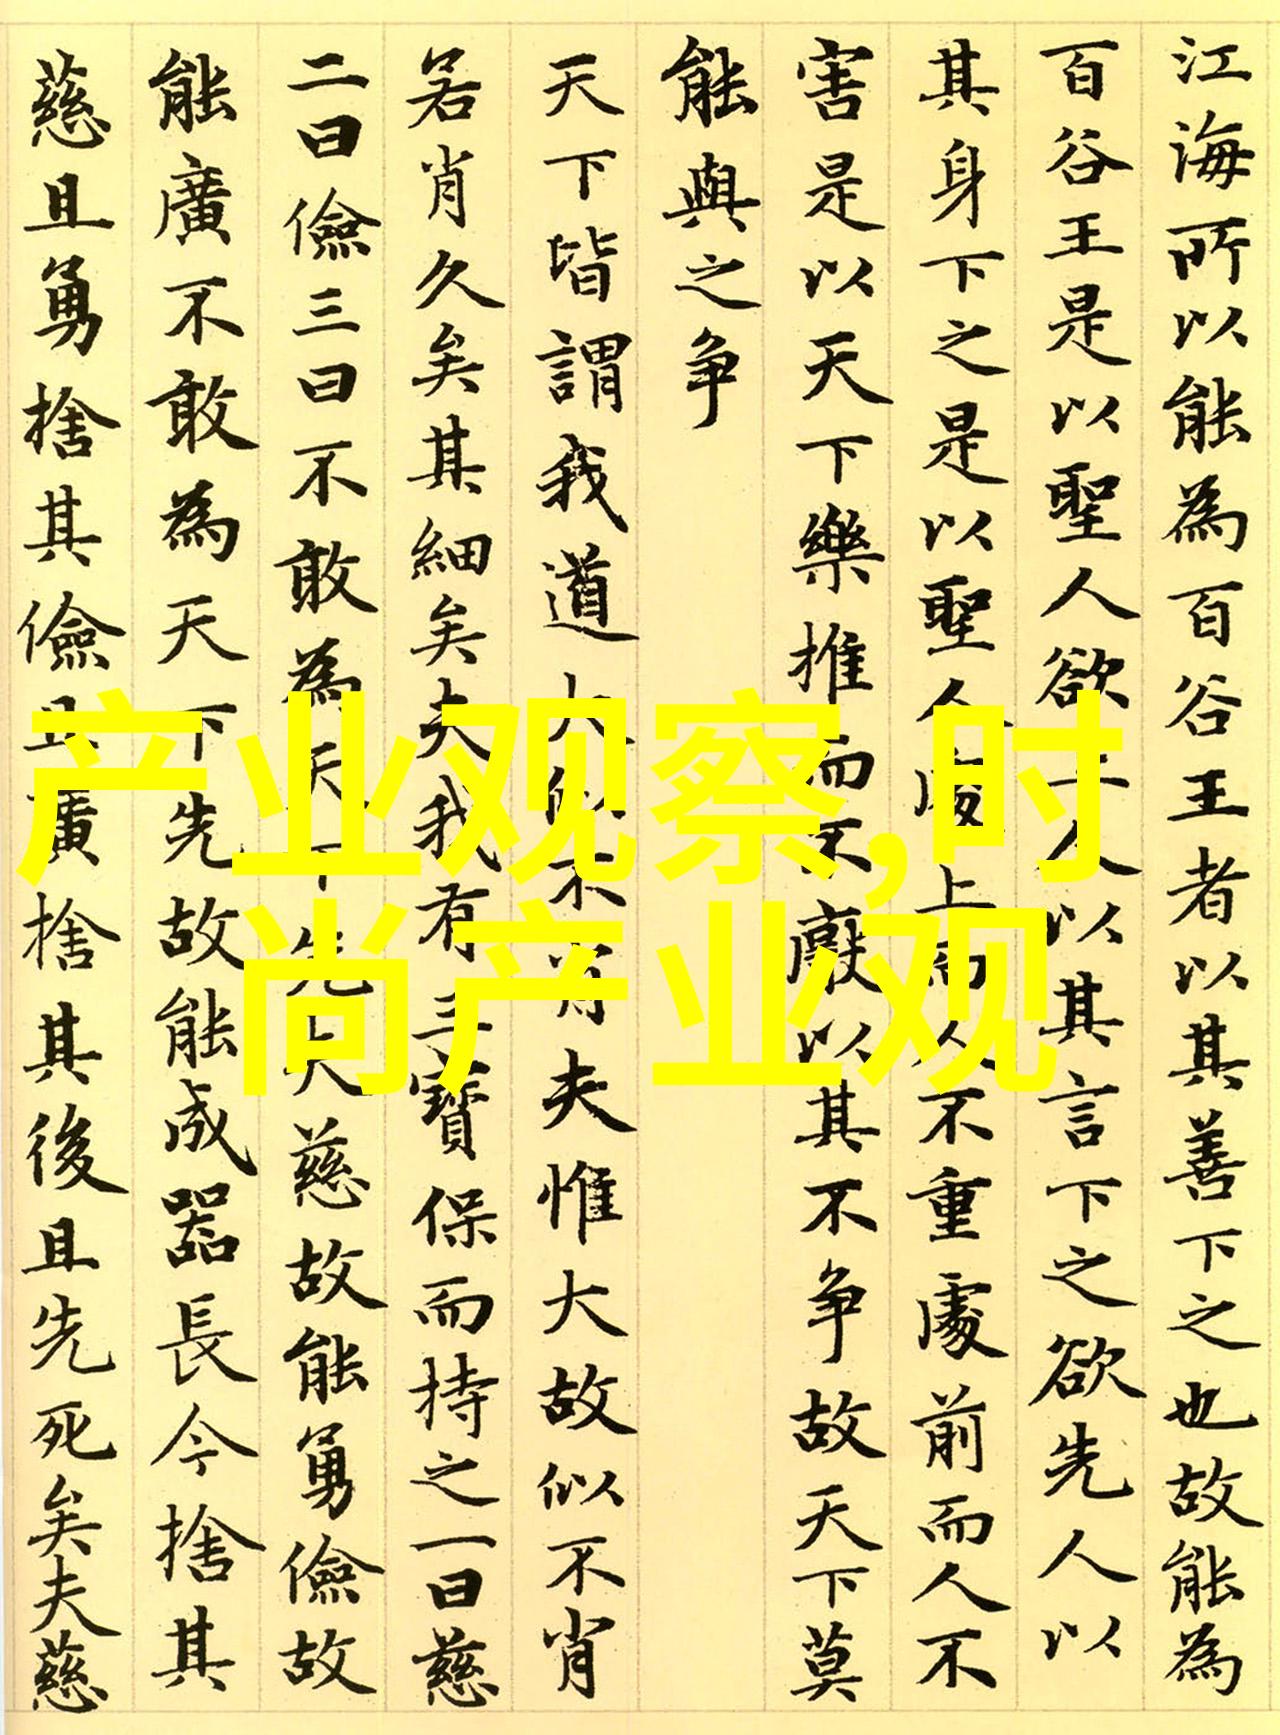 江海所以能為百谷王者以其善下之也故能為
百谷王是以聖人欲上人以其言下之欲先人以
其身下之是以聖人處上而人不重處前而人不
害是以天下樂推而不厭以其不争故天下莫
能與之争
天下皆謂我道大似不肖夫惟大故似不肖
若肖久矣其細矣夫我有三寶保而持之一曰慈
二曰儉三曰不敢為天下先夫慈故能勇儉故
能廣不敢為天下先故能成器長今捨其
慈且勇捨其儉且廣捨其後且先死矣夫慈
产业观察,时
尚产业观